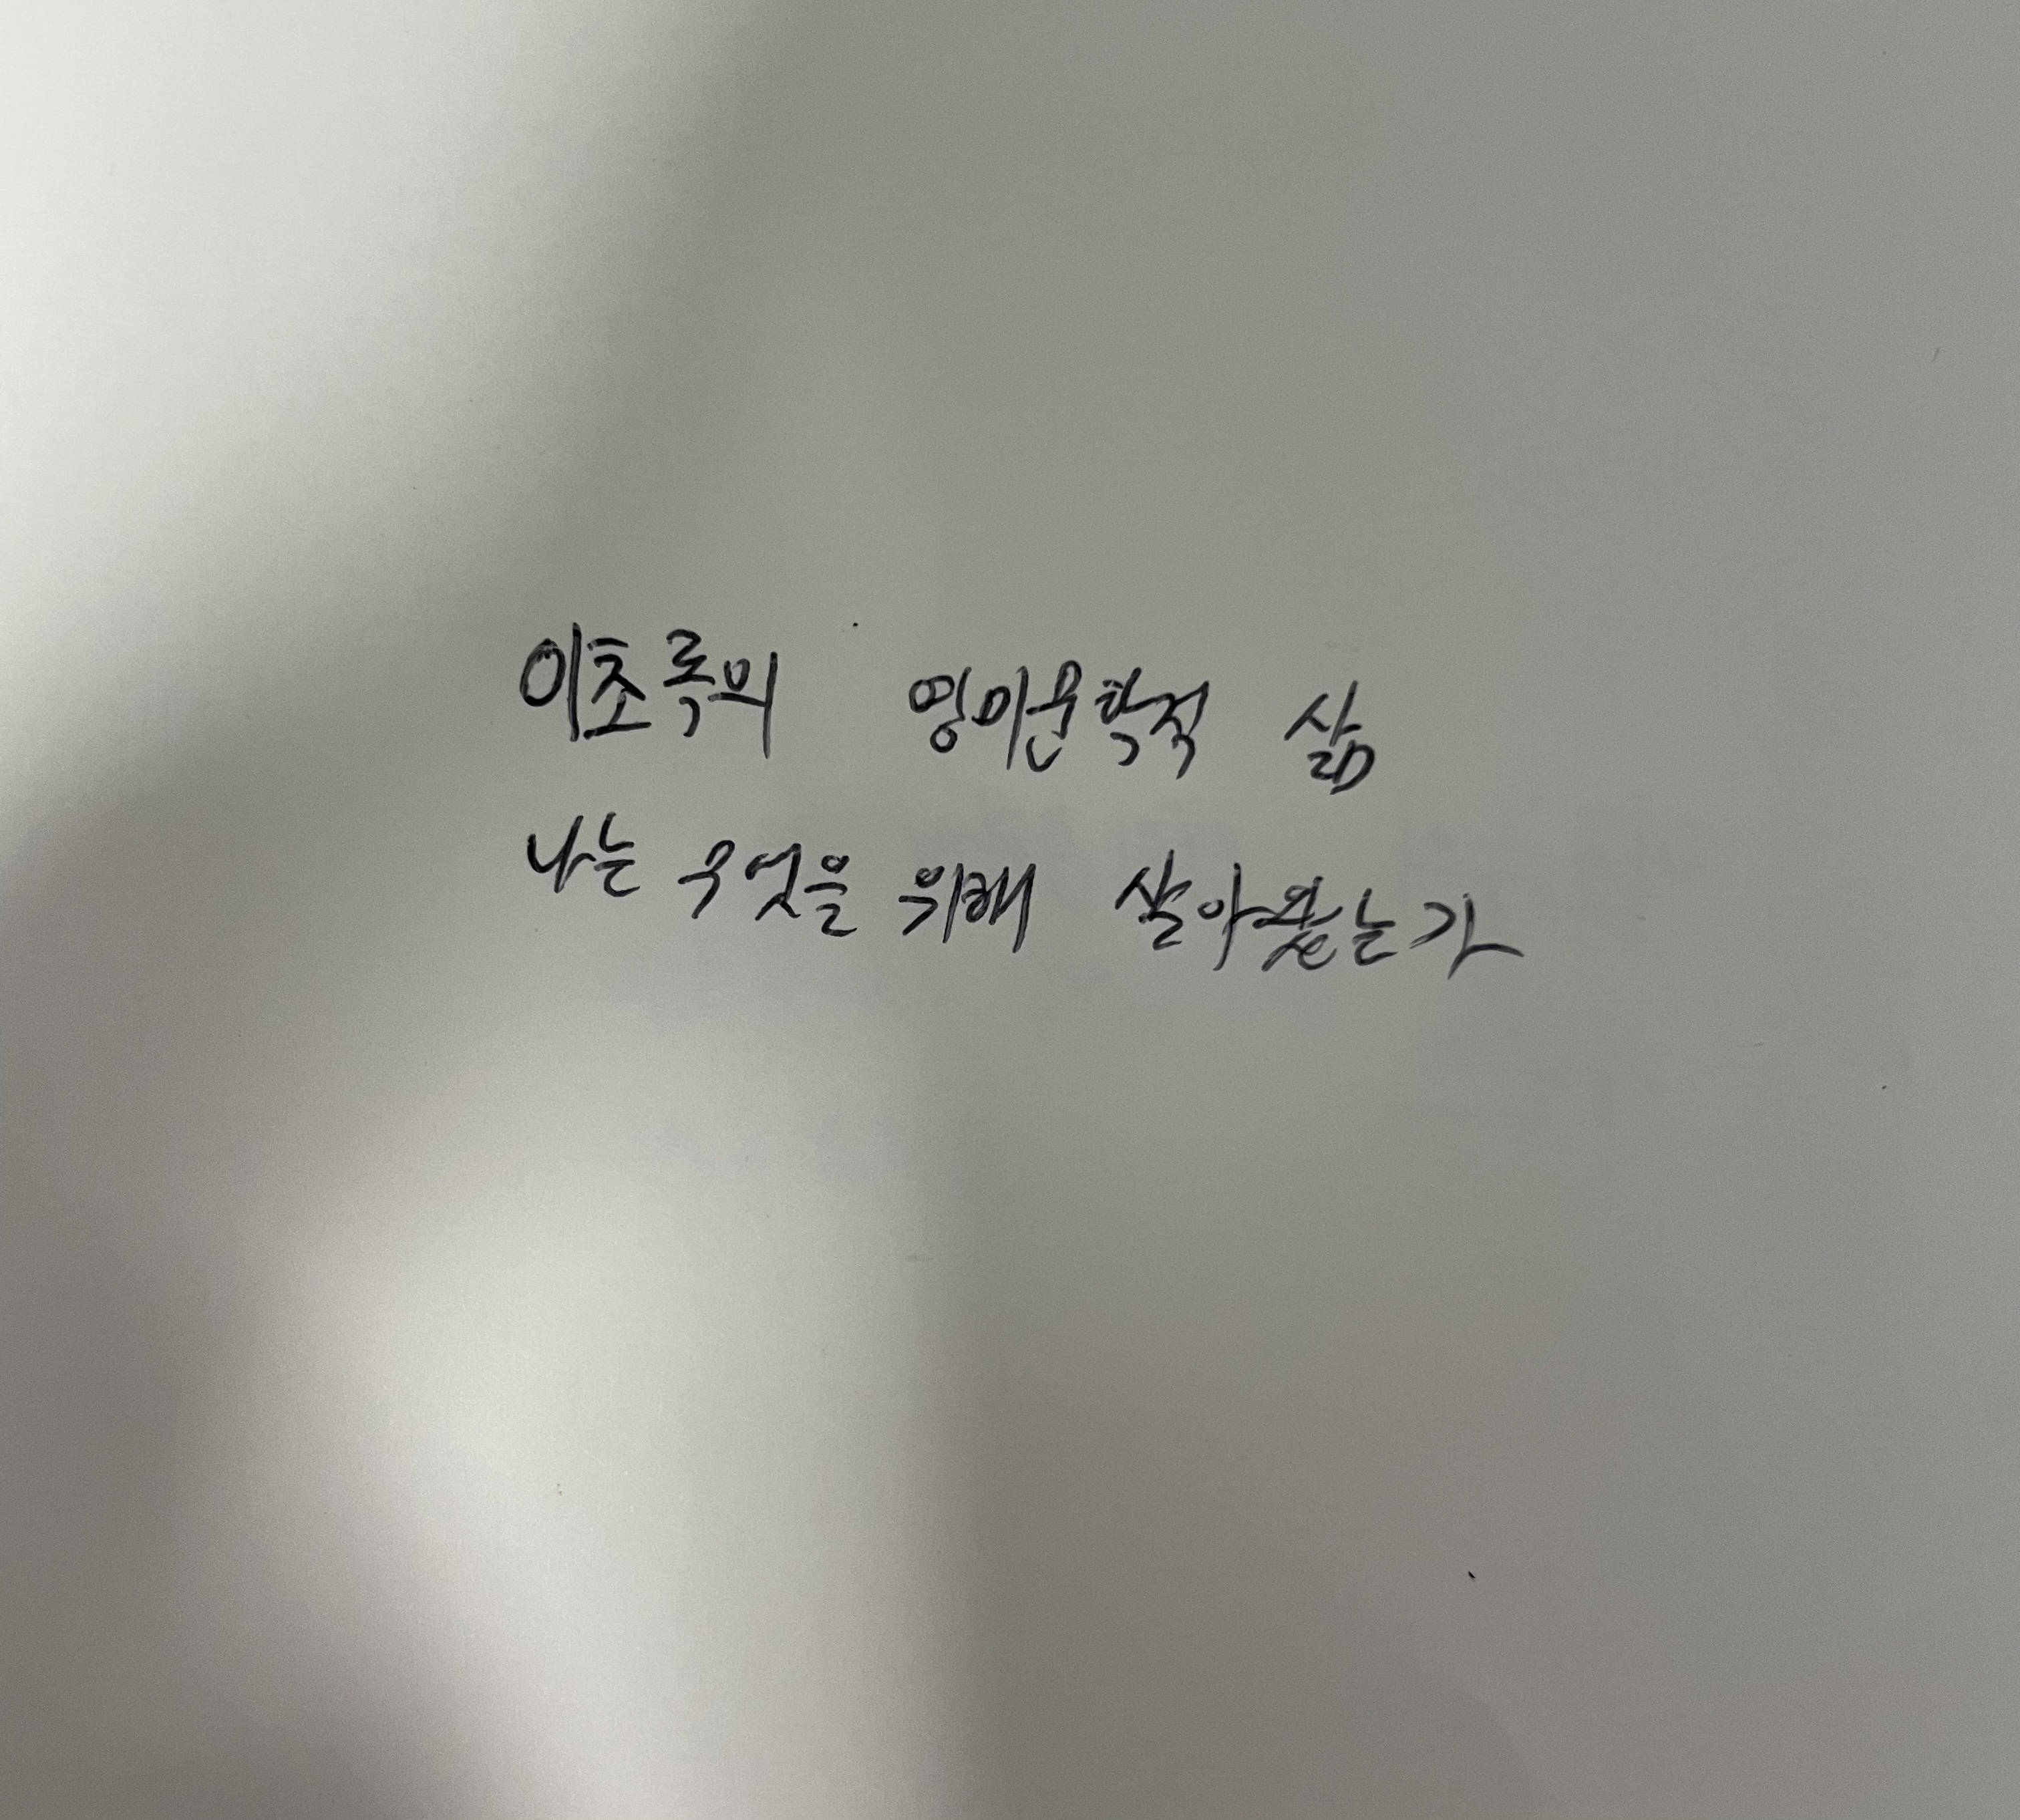 이초록의 영미문학적 삶
나는 무엇을 위해 살아왔는가